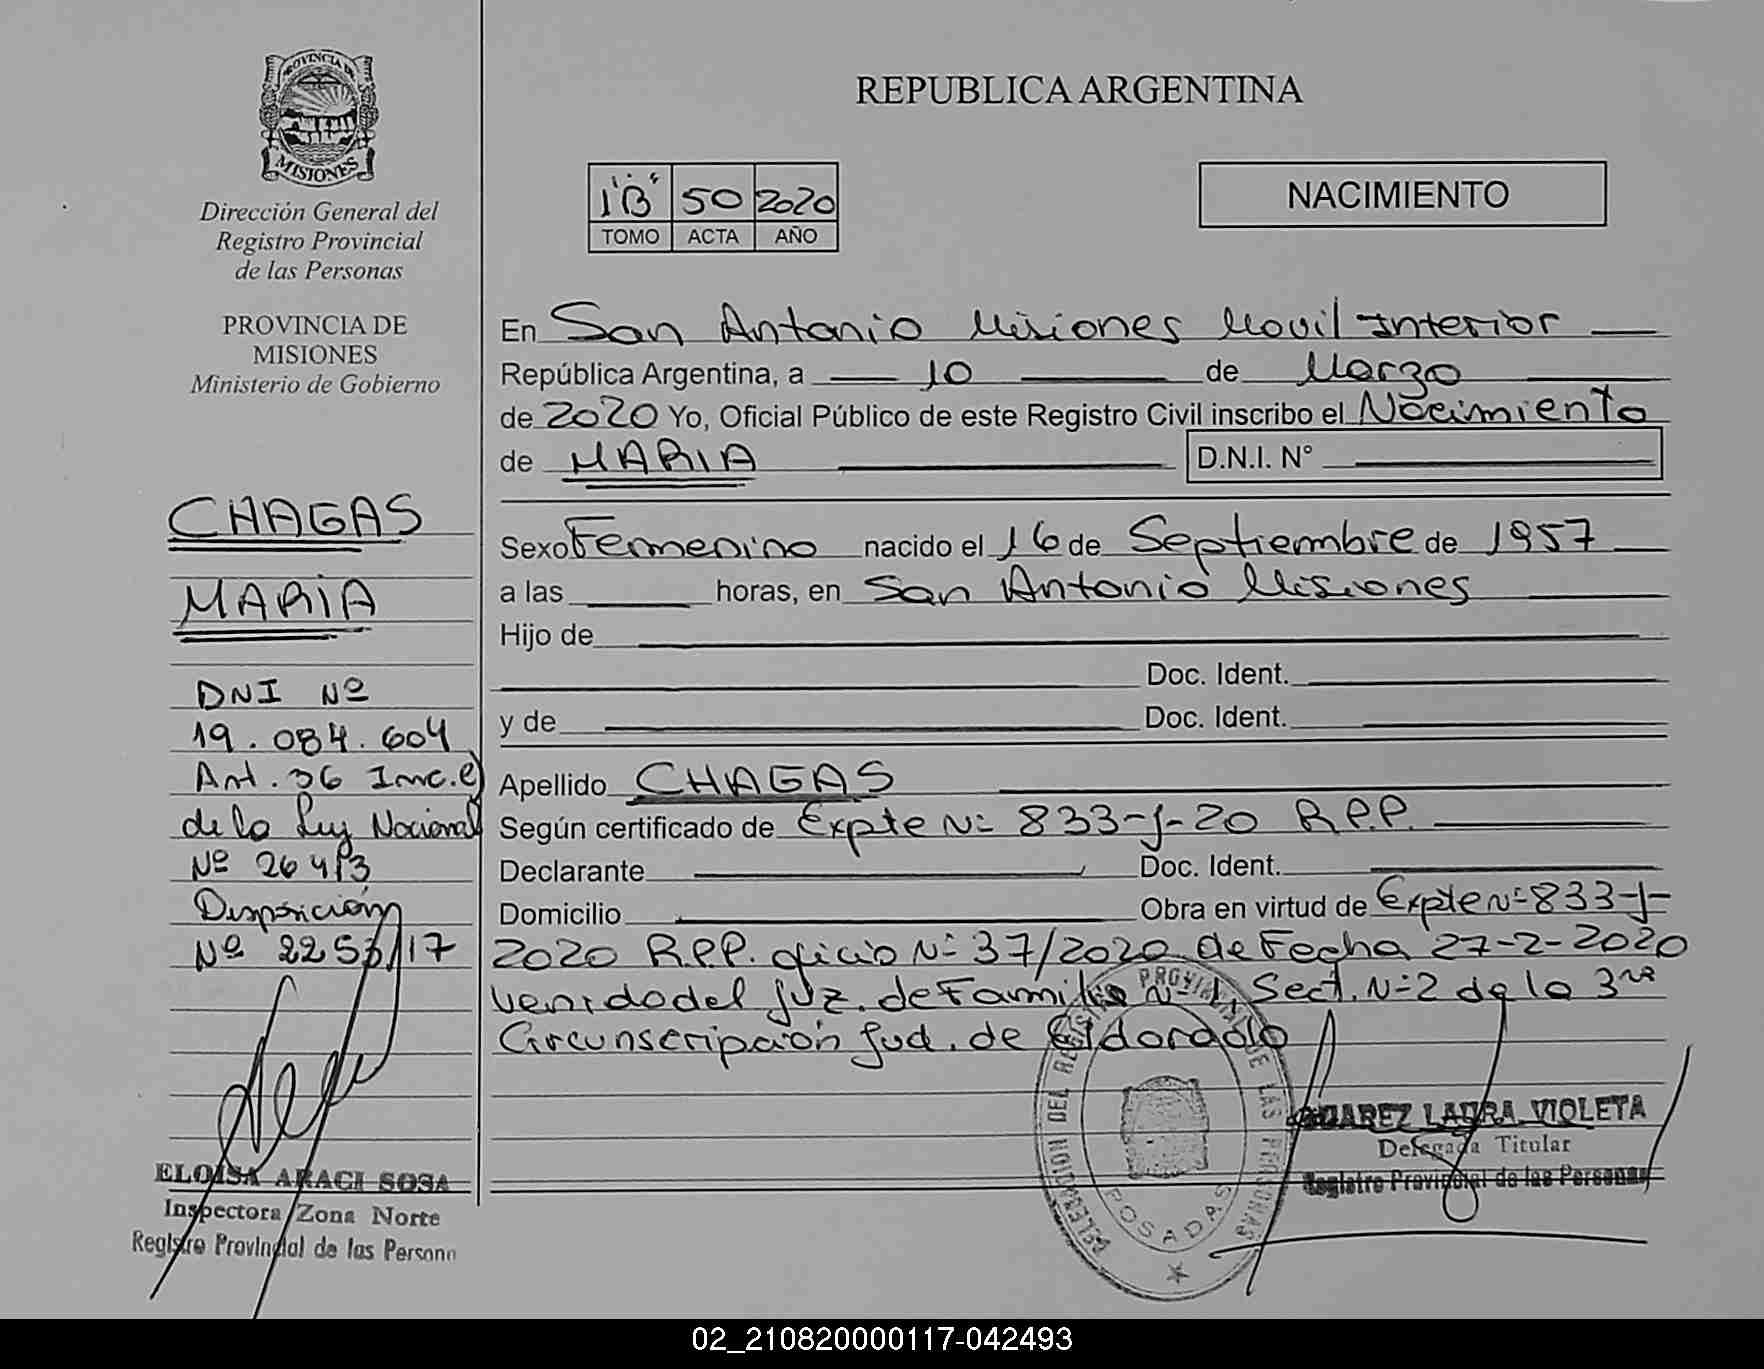 PROVINCIA DE
MISIONES
Dirección General del
Registro Provincial
de las Personas
PROVINCIA DE
MISIONES
Ministerio de Gobierno
CHAGAS
MARIA
DNI Nº
19.084.604
Art. 36 Inc. e)
de la Ley Nacional
Nº 26413
Disposición
Nº 2253/17
ELOISA ARACI SOSA
Inspectora Zona Norte
Registro Provincial de las Persona
REPUBLICA ARGENTINA
1"B" 50 2020
TOMO ACTA AÑO
NACIMIENTO
En San Antonio Misiones Movil Interior
República Argentina, a 10 de Marzo
de 2020 Yo, Oficial Público de este Registro Civil inscribo el Nacimiento
de MARIA D.N.I. N°
Sexo Femenino nacido el 16 de Septiembre de 1957
a las horas, en San Antonio Misiones
Hijo de
Doc. Ident.
y de Doc. Ident.
Apellido CHAGAS
Según certificado de Expte Nº 833-J-20 R.P.P.
Declarante Doc. Ident.
Domicilio Obra en virtud de Expte Nº 833-J-
2020 R.P.P. oficio Nº 37/2020 de Fecha 27-2-2020
venido del Juz. de Familia Nº 1, Sect. Nº 2 de la 3ra
Circunscripción Jud. de Eldorado
DELEGACION DEL REGISTRO PROVINCIAL DE LAS PERSONAS
POSADAS
SUAREZ LAURA VIOLETA
Delegada Titular
Registro Provincial de las Personas
02_210820000117-042493